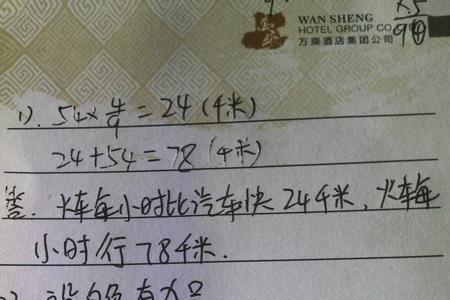 WAN SHENG
HOTEL GROUP CO
万乘酒店集团公司
×.5
9④
1). 54×4/9=24(千米)
24+54=78(千米)
答:火车每小时比汽车快24千米,火车每
小时行78千米.